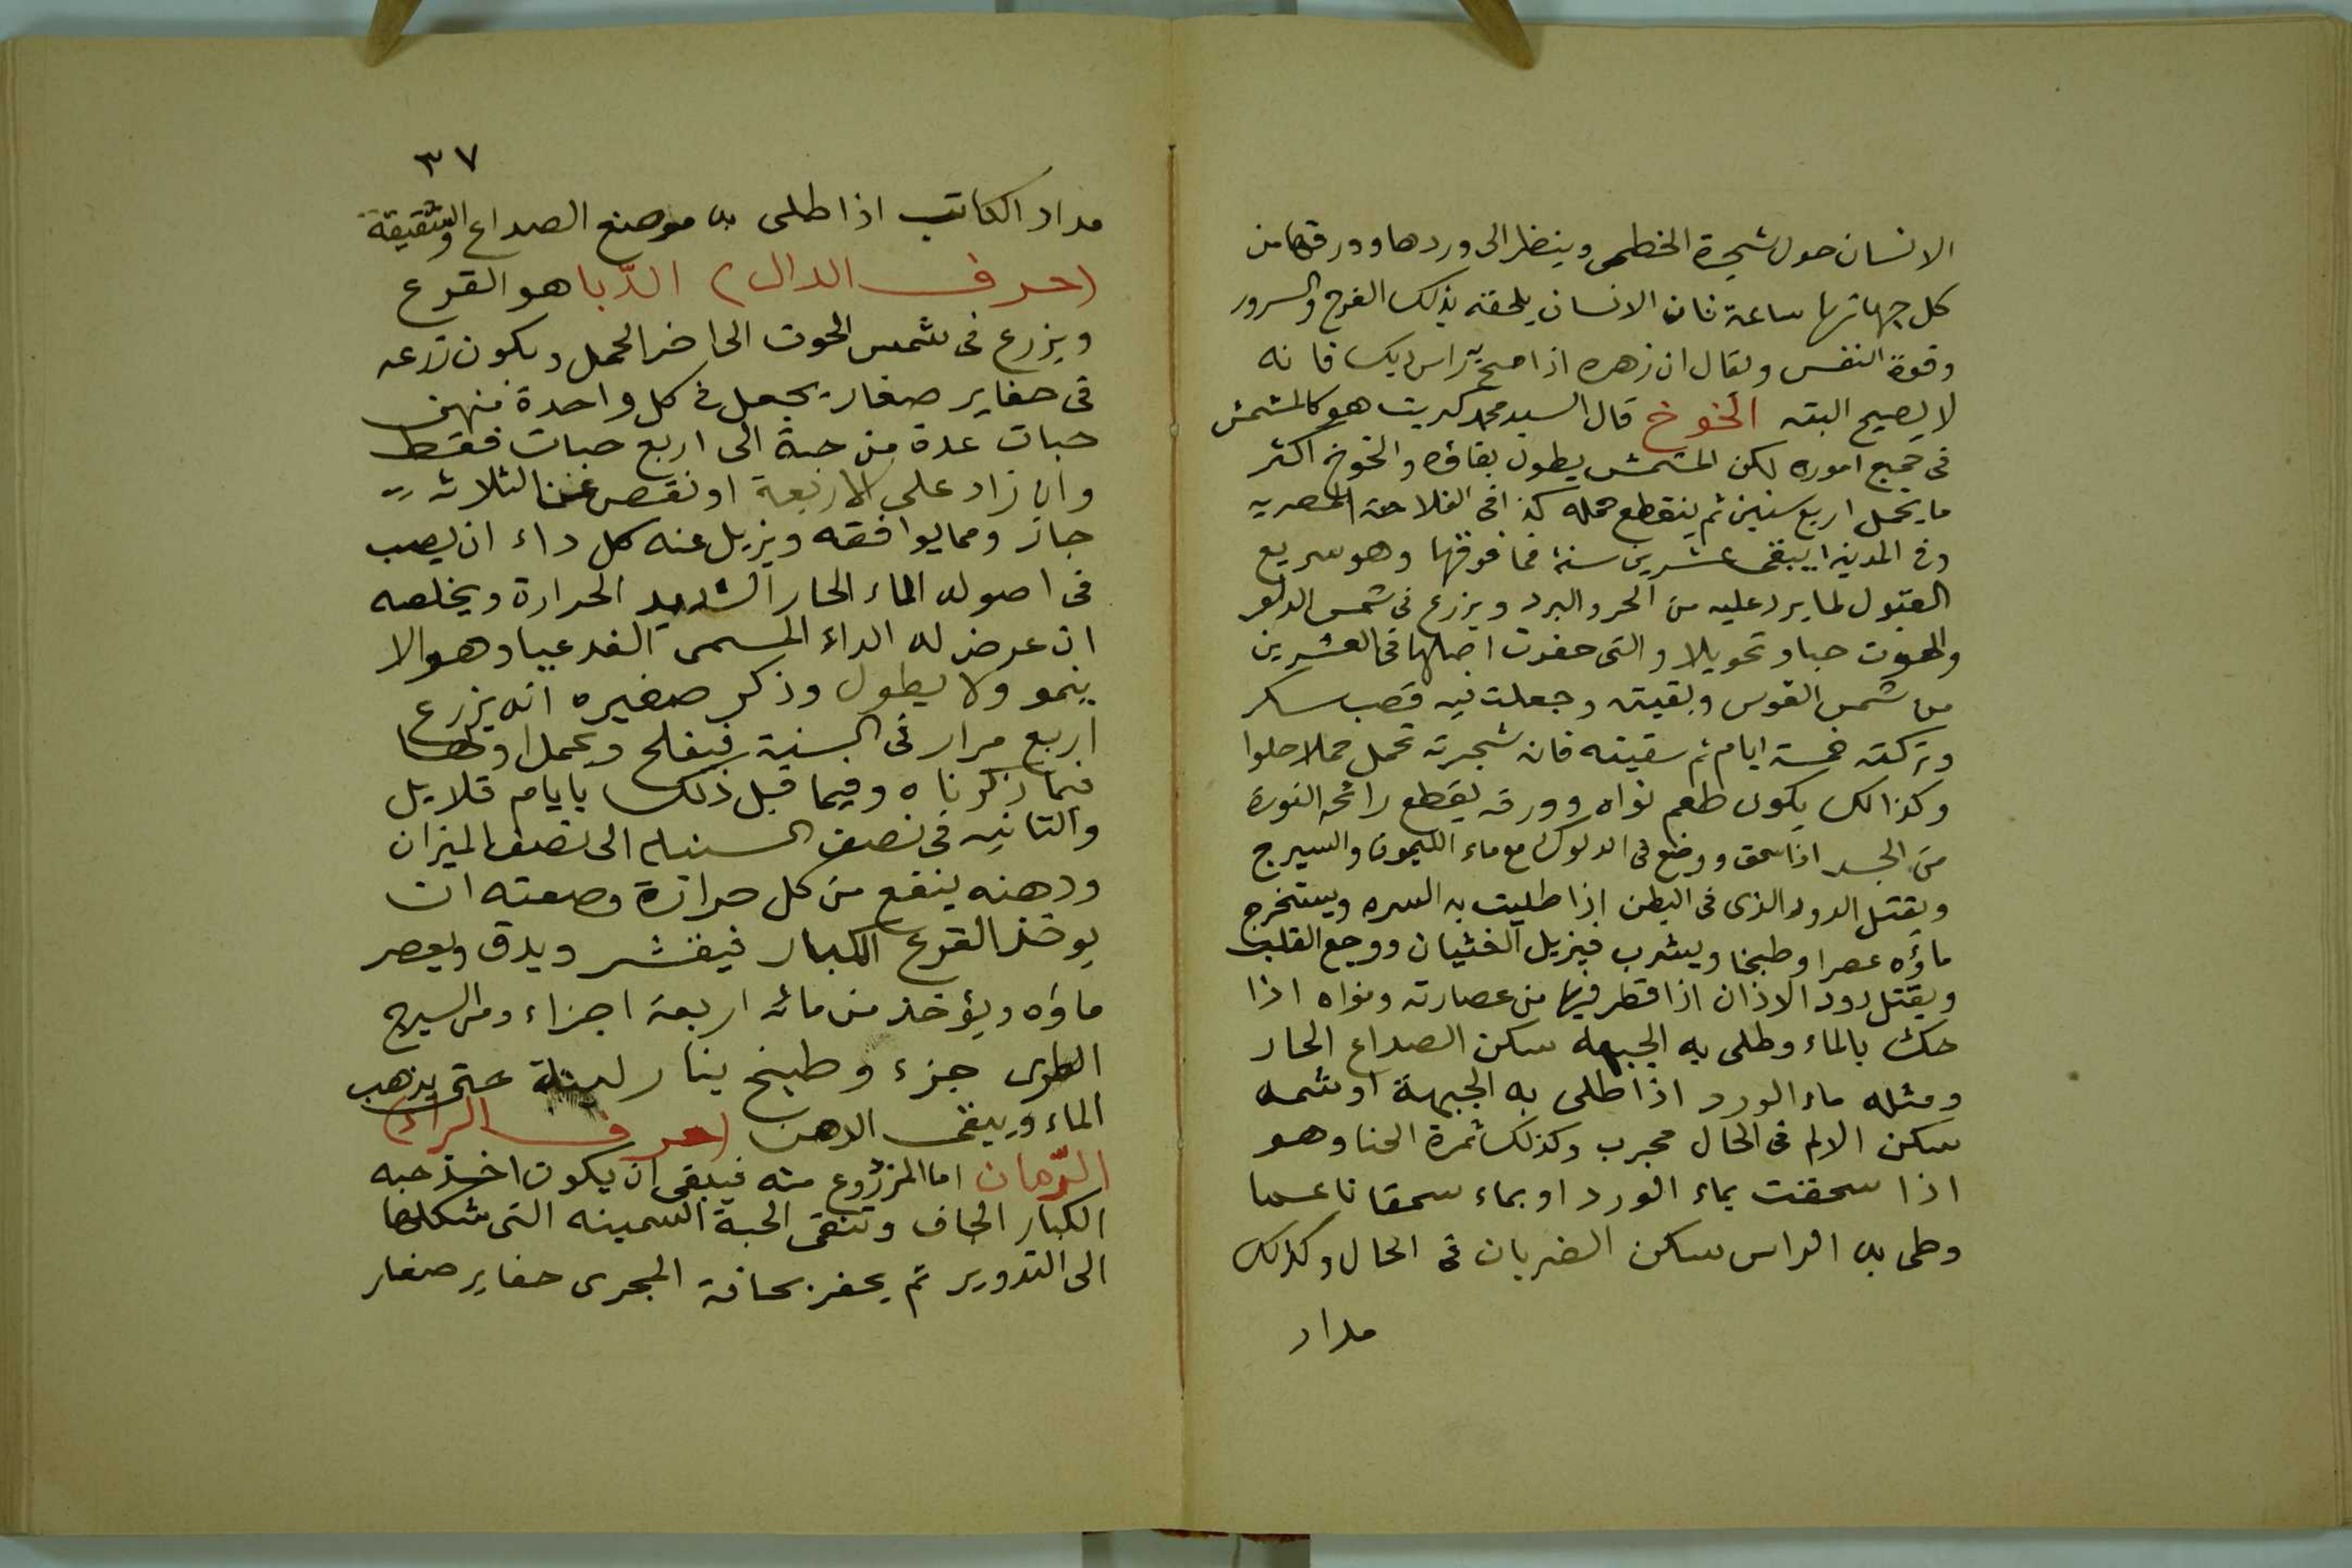 الانسان حول شجرة الخطمى وينظر الى وردها وورقها من
كل جهاتها ساعة فان الانسان يلحقه بذلك الفرح والسرور
وقوة النفس ويقال ان زهره اذا مسح به راس ديك فانه
لا يصيح البته الخوخ قال السيد محمد كبريت هو كالمشمش
فى جميع اموره لكن المشمش يطول بقاؤه والخوخ اكثر
ما يحمل اربع سنين ثم ينقطع حمله كذا فى الفلاحة المصريه
وفى المدينه يبقى عشرين سنة فما فوقها وهو سريع
القبول لما يرد عليه من الحر والبرد ويزرع فى شمس الدلو
والحوت حبا وتحويلا والتى حفرت اصلها فى العشرين
من شمس القوس وبقيته وجعلت فيه قصب سكر
وتركته خمسة ايام ثم سقيته فان شجرته تحمل حملا حلوا
وكذالك يكون طعم نواه وورقه يقطع رائحه النورة
من الجسد اذا سحق ووضع فى الدلوك مع ماء الليمون والسيرج
ويقتل الدود الذى فى البطن اذا طليت به السره ويستخرج
ماؤه عصرا وطبخا ويشرب فيزيل الغثيان ووجع القلب
ويقتل دود الاذان اذا قطر فيها من عصارته ونواه اذا
حك بالماء وطلى به الجبهه سكن الصداع الحار
ومثله ماء الورد اذا طلى به الجبهة او شمه
سكن الالم فى الحال مجرب وكذلك ثمرة الحنا وهو
اذا سحقت بماء الورد او بماء سحقا ناعما
وطلى به الراس سكن الضربان فى الحال وكذلك
مداد
٣٧
مداد الكاتب اذا طلى به موضع الصداع والشقيقة
(حرف الدال) الدّبا هو القرع
ويزرع فى شمس الحوت الى اخر الحمل ويكون زرعه
فى حفاير صغار يجعل فى كل واحدة منهن
حبات عدة من حبة الى اربع حبات فقط
وان زاد على الاربعة او نقص عن الثلاثه
جاز ومما يوافقه ويزيل عنه كل داء ان يصب
فى اصوله الماء الحار الشديد الحرارة ويخلصه
ان عرض له الداء المسمى وهو الا
ينمو ولا يطول وذكر صغيره انه يزرع
اربع مرار فى السنة فيفلح ويحمل اولها
فيما ذكرناه وفيما قبل ذلك بايام قلايل
والثانيه فى نصف السنبله الى نصف الميزان
ودهنه ينفع من كل حرارة وصعته ان
يوخذ القرع الكبار فيقشر ويدق ويعصر
ماؤه ويؤخذ من مائه اربعة اجزاء ومن السيرج
الطرى جزء وطبخ بنار لينة حتى يذهب
الماء ويبقى الدهن (حرف الراء)
الرّمان اما المزروع منه فينبغى ان يكون اخذ حبه
الكبار الجاف وتنقى الحبة السمينه التى شكلها
الى التدوير ثم يحفر بحافة المجرى حفاير صغار